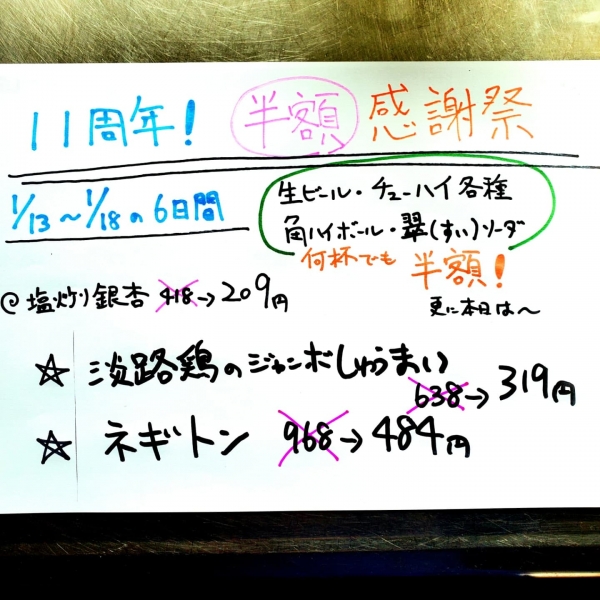 11周年! 半額 感謝祭
1/13〜1/18の6日間
生ビール・チューハイ各種
角ハイボール・翠(すい)ソーダ
何杯でも 半額!
@塩炒り銀杏 418→209円
更に本日は〜
☆ 淡路鶏のジャンボしゅうまい
638→319円
☆ ネギトン 968→484円